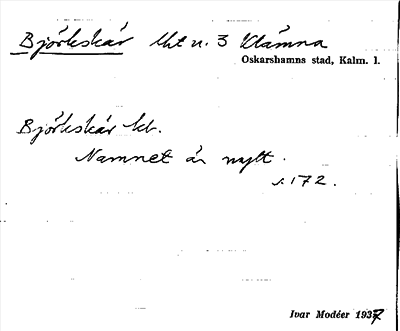 Björkskär lht n. 3 Klämna
Oskarshamns stad, Kalm. l.
Björkskär kb.
Namnet är nytt.
s. 172.
Ivar Modéer 1937